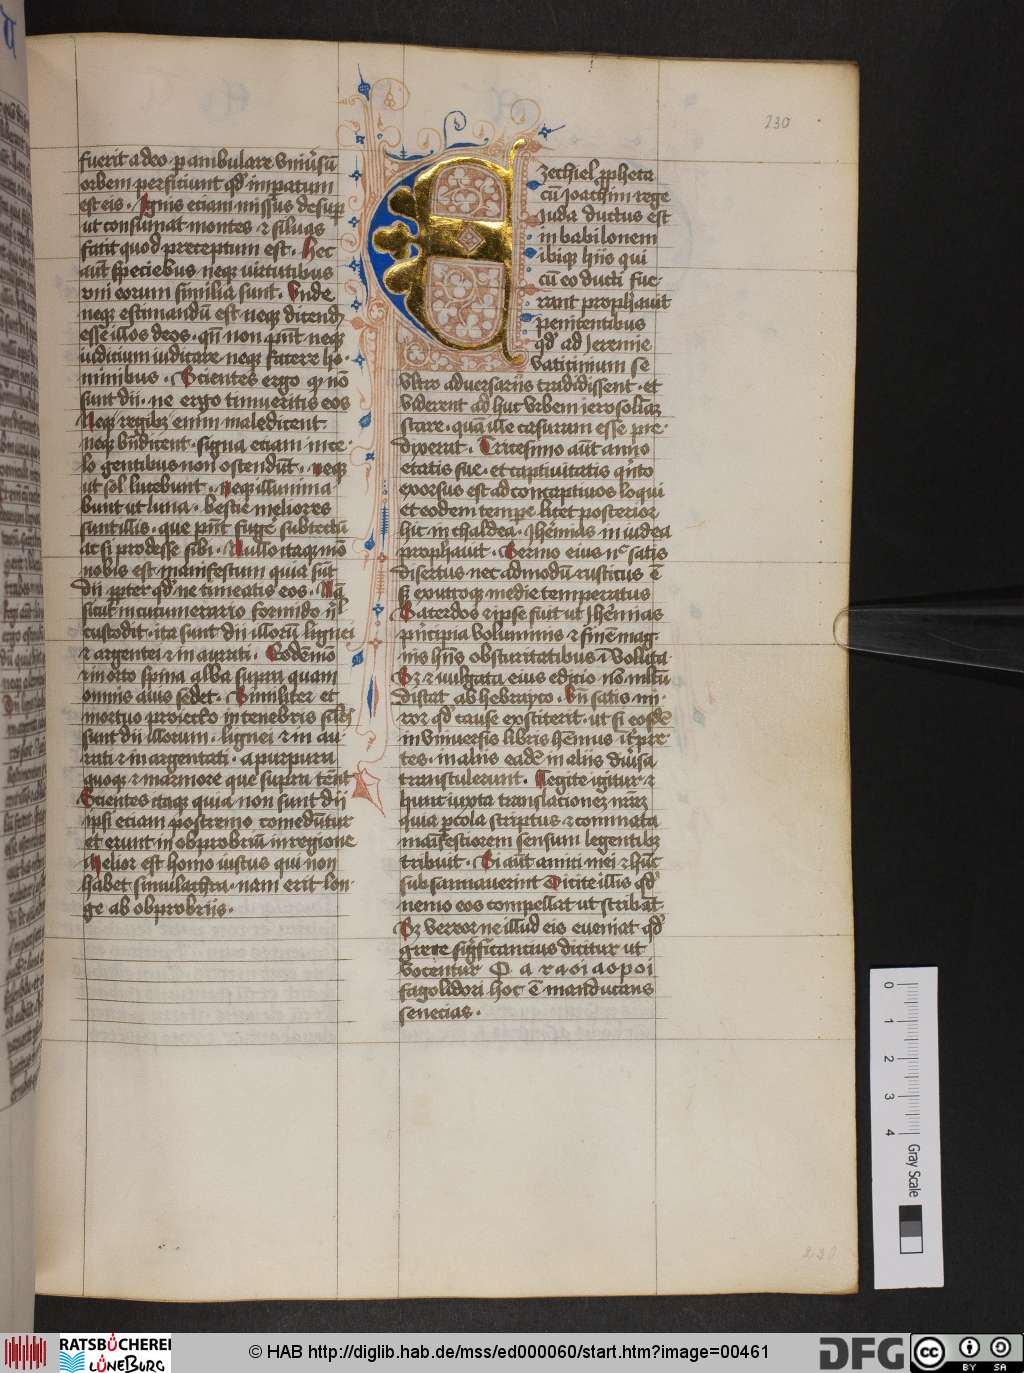 230
fuerit a deo · p ambulare vniu'sū
orbem perficiunt qd' impatum
est eis · Ignis eciam missus desup
ut consumat montes & siluas
facit quod preceptum est · Hec
aut̄ speciebus neq; uirtutibus
vni eorum similia sunt · Vnde
neq; estimandū est neq; dicend
esse illos deos · qn̄ non pn̄t neq;
iudicium iudicare neq; facere ho
minibus · Scientes ergo q; nō
sunt dii · ne ergo timueritis eos
Neq; regib; enim maledicent
neq; bn̄dicent · signa eciam in ce
lo gentibus non ostendūt · neq;
ut sol lucebunt · neq; illumina
bunt ut luna · bestie meliores
sunt illis · que pn̄t fuge' sub tectū
ac si prodesse sibi · Nullo itaq; mō
nobis est manifestum quia sūt
dii · ppter qd' ne timeatis eos · Nā
sicut in cucumerario formido n'l
custodit · ita sunt dii illorū lignei
& argentei & in aurati · Eodē mō
& in orto spina alba supra quam
omnis auis sedet · Similiter et
mortuo proiecto in tenebris sil'es
sunt dii illorum · lignei & in au
rati & in argentati · a purpura
quoq; & marmore que supra tēnt
Scientes itaq; quia non sunt dii
ipsi eciam postremo comedūtur
et erunt in obprobriū in regione
Melior est homo iustus qui non
habet simulachra · nam erit lon
ge ab obprobriis ·
Ezechiel ppheta
cū Joachim rege
Juda ductus est
in babilonem
ibiq; hiis qui
cū eo ducti fue
rant prophauit
penitentibus
qd' ad Jeremie
vaticinium se
vltro adversariis tradidissent · et
viderent ad huc vrbem ierosolimā
stare · quā ille casuram esse pre
dixerat · Tricesimo aūt anno
etatis sue · et captiuitatis q'nto
exorsus est ad concaptiuos loqui
et eodem tempe licet posterior
hic in chaldea · Jhe'mias in iudea
prophauit · Sermo eius nec satis
disertus nec ad modū rusticus ē
s; ex utroq; medie temperatus
Sacerdos & ipse fuit ut Jhe'mias
p'ncipia voluminis & finē mag
nis hn̄s obscuritatibus ī voluta
S; & vulgata eius edicio nō multū
distat ab hebrayco · Vn̄ satis mi
ror qd' cause exstiterit · ut si eosdē
in vniuersis libris he'mus īt'pre
tes · in aliis eadē in aliis diu'sa
transtulerunt · Legite igitur &
hunc iuxta translacionez nr̄az
quia p cola scriptus & cōmata
maīfestiorem sensum legentib;
tribuit · Si aūt amici mei & hūc
sub sannauerint Dicite illis qd'
nemo eos compellat ut scribāt
S; vereor ne illud eis eueniat qd'
grece significancius dicitur ut
vocentur Φ a r a o i a o p o i
fagolidori hoc ē manducans
senecias ·
230
0 1 2 3 4
Gray Scale
RATSBÜCHEREI
LÜNEBURG
© HAB http://diglib.hab.de/mss/ed000060/start.htm?image=00461
DFG
cc BY SA